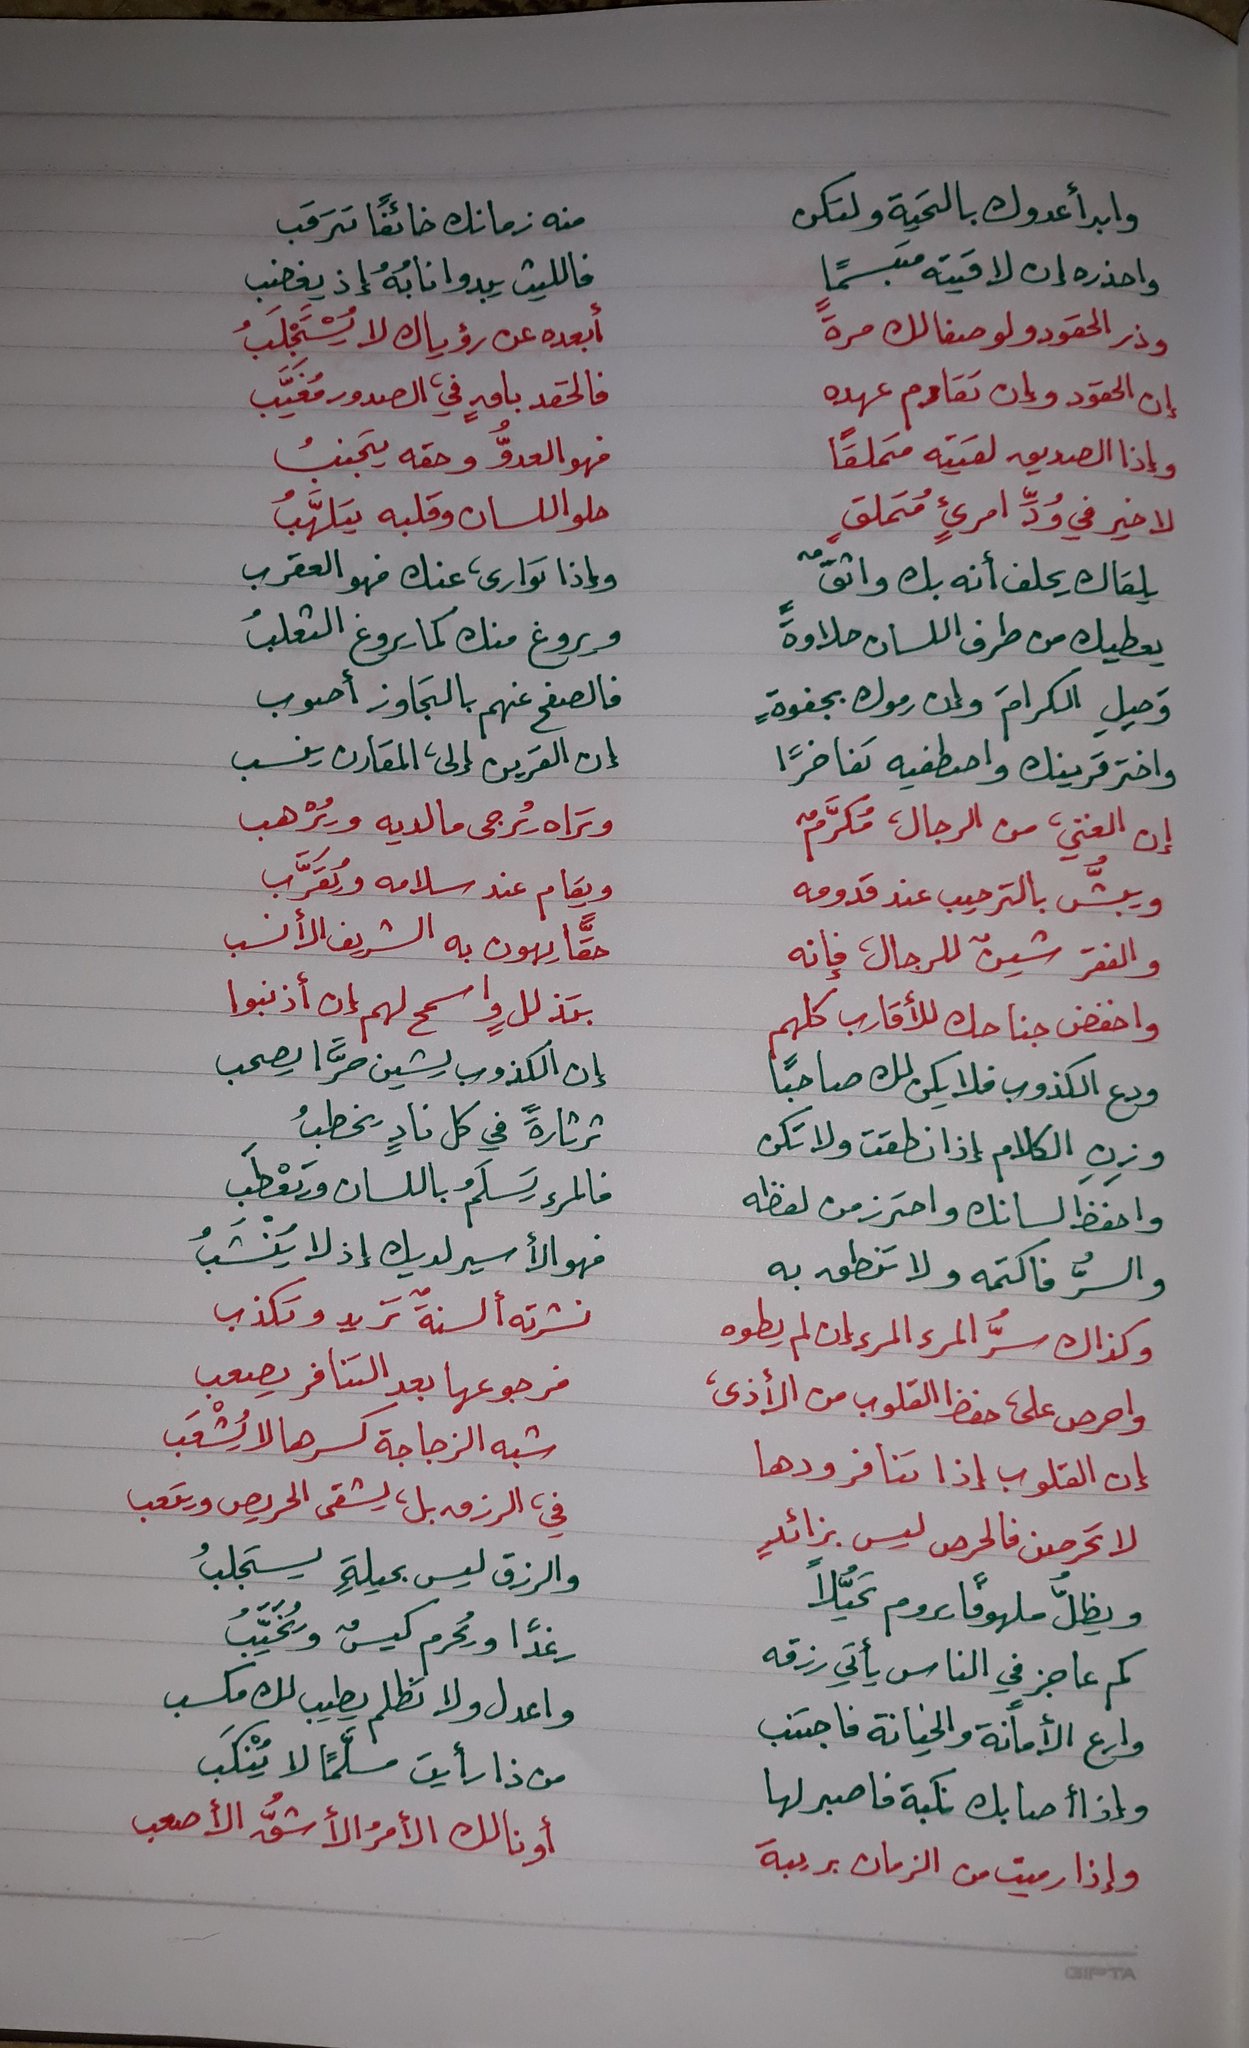 وابدأ عدوك بالتحية ولتكن منه زمانك خائفًا تترقب
واحذره إن لاقيته متبسمًا فالليث يبدوا نابُهُ إذ يغضب
وذر الحقود ولو صفا لك مرةً أبعده عن رؤياك لا يُسْتَجْلَبُ
إن الحقود وإن تقادم عهده فالحقد باقٍ في الصدور مُغَيَّب
وإذا الصديق لقيته متملقًا فهو العدوُّ وحقه يتجنبُ
لا خير في وُدِّ امرئٍ مُتَملقٍ حلو اللسان وقلبه يتلهَّبُ
يلقاك يحلف أنه بك واثقٌ وإذا توارى عنك فهو العقرب
يعطيك من طرف اللسان حلاوةً ويروغ منك كما يروغ الثعلبُ
وَصِلِ الكرامَ وإن رموك بجفوةٍ فالصفح عنهم بالتجاوز أصوب
واختر قرينك واصطفيه تفاخرًا إن القرين إلى المقارن ينسب
إن الغني من الرجال مُكَرَّمٌ وتراه يُرجى ما لديه ويُرْهب
ويبشُّ بالترحيب عند قدومه ويقام عند سلامه ويُقَرَّب
والفقر شينٌ للرجال فإنه حقًّا يهون به الشريف الأنسب
واخفض جناحك للأقارب كلهم بتذللٍ واسمح لهم إن أذنبوا
ودع الكذوب فلا يكن لك صاحبًا إن الكذوب يشين حرًّا يصحب
وزنِ الكلام إذا نطقت ولا تكن ثرثارةً في كل نادٍ يخطبُ
واحفظ لسانك واحترز من لفظه فالمرء يَسَلَمُ باللسان ويَعْطَب
والسرُّ فاكتمه ولا تنطق به فهو الأسير لديك إذ لا يَنْشَبُ
وكذاك سرُّ المرء المرء إن لم يطوه نشرته ألسنةٌ تزيد وتكذب
واحرص على حفظ القلوب من الأذى فرجوعها بعد التنافر يصعب
إن القلوب إذا تنافر ودها شبه الزجاجة كسرها لا يُشْعَب
لا تحرصن فالحرص ليس بزائدٍ في الرزق بل يشقى الحريص ويتعب
ويظلُّ ملهوفًا يروم تحيُّلاً والرزق ليس بحيلةٍ يستجلبُ
كم عاجز في الناس يأتي رزقه رغدًا ويُحرم كيسٌ ويُخَيَّبُ
وارع الأمانة والخيانة فاجتنب واعدل ولا تظلم يطيب لك مكسب
وإذا أصابك نكبة فاصبر لها من ذا رأيت مسلَّمًا لا يُنْكَب
وإذا رميت من الزمان بريبة أو نالك الأمرُ الأشقُّ الأصعب
GIPTA